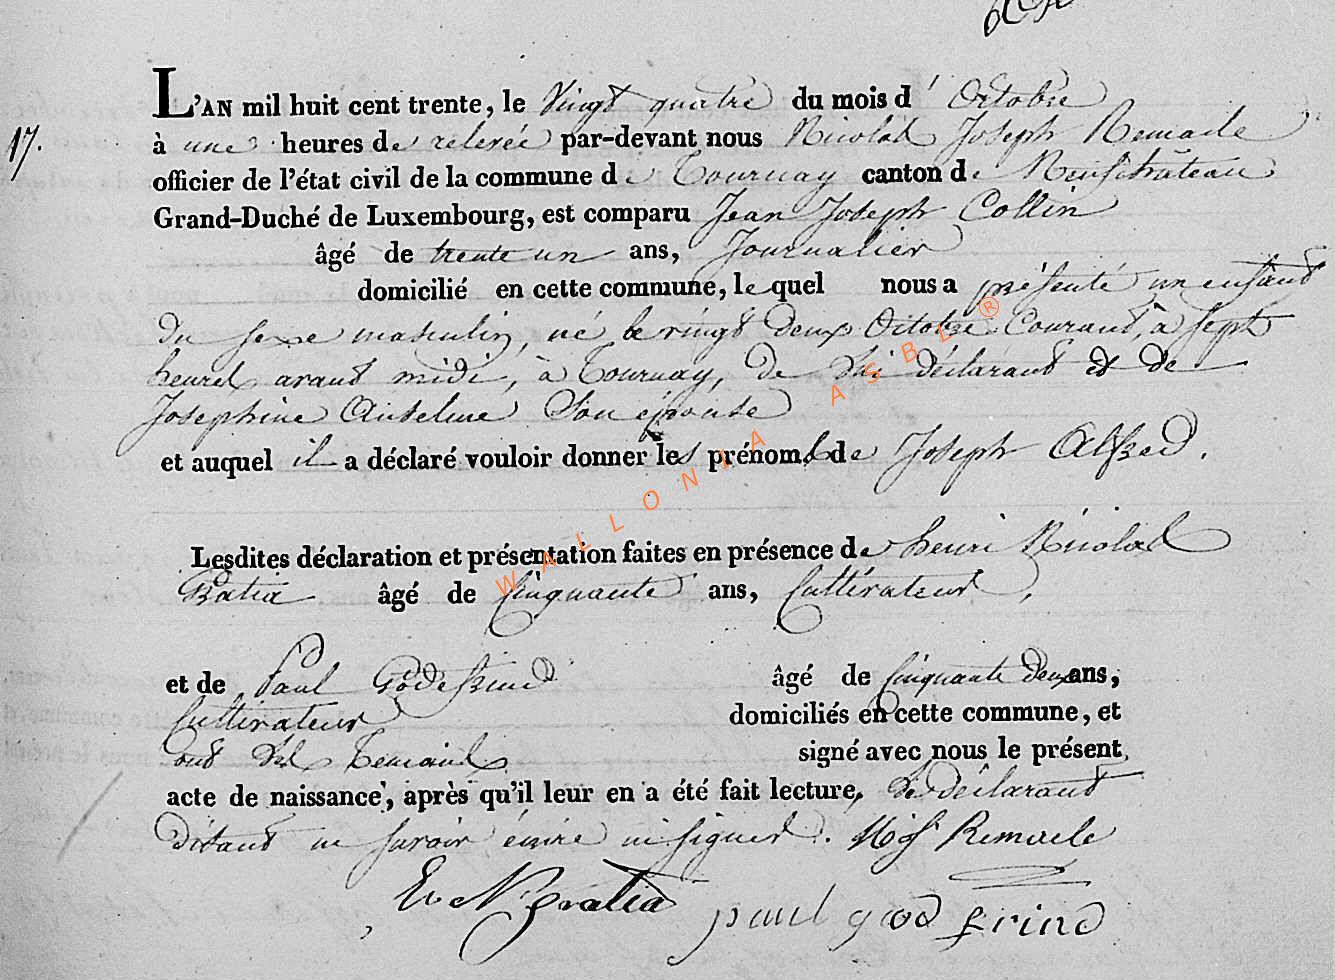 17.
L'AN mil huit cent trente, le Vingt quatre du mois d' Octobre
à une heures de relevée par-devant nous Nicolas Joseph Remacle
officier de l'état civil de la commune de Tournay canton de Neufchateau
Grand-Duché de Luxembourg, est comparu Jean Joseph Collin
âgé de trente un ans, Journalier
domicilié en cette commune, le quel nous a présenté un enfant
du sexe masculin, né le vingt deux Octobre Courant, à Sept
heures avant midi, à Tournay, de lui déclarant et de
Josephine Anselme Son épouse
et auquel il a déclaré vouloir donner les prénoms de Joseph Alfred.
Lesdites déclaration et présentation faites en présence de henri Nicolas
Gratia âgé de Cinquante ans, Cultivateur,
et de Paul Godefrind âgé de Cinquante deux ans,
Cultivateur domiciliés en cette commune, et
ont les temoins signé avec nous le présent
acte de naissance, après qu'il leur en a été fait lecture, le déclarant
disant ne savoir écrire ni signer. Remacle
gratia paul god frind
WALLONIA ASBL ®